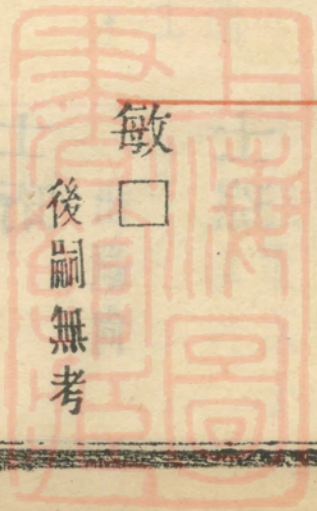 敏□
後嗣無考